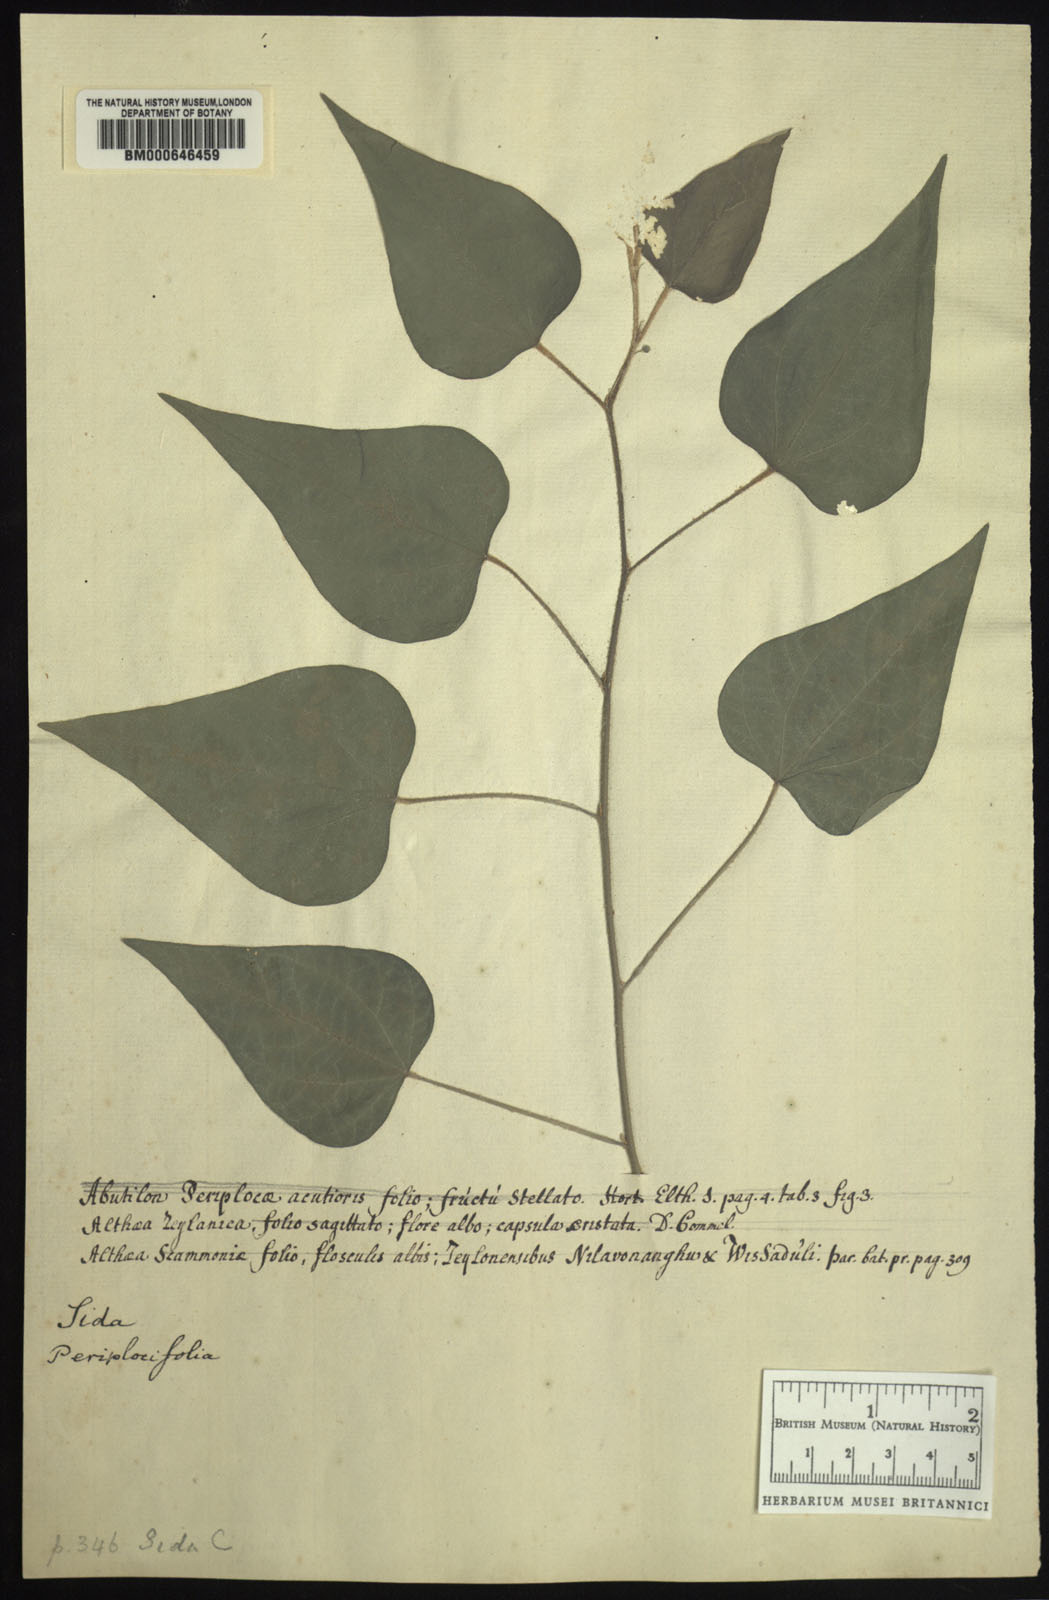 THE NATURAL HISTORY MUSEUM, LONDON
DEPARTMENT OF BOTANY
BM000646459
Abutilon Periplocæ acutioris folio; frúctú stellato. Hort. Elth. 1. pag. 4. tab. 3. fig. 3.
Althæa Zeylanica, folio sagittato; flore albo; capsula cristata. D. Commel.
Althæa Scammoniæ folio, flosculis albis; Zeylonensibus Nilavonanghu & Wissadúli. par. bat. pr. pag. 309
Sida
Periplocifolia
1 2
BRITISH MUSEUM (NATURAL HISTORY)
1 2 3 4 5
HERBARIUM MUSEI BRITANNICI
p. 346 Sida C